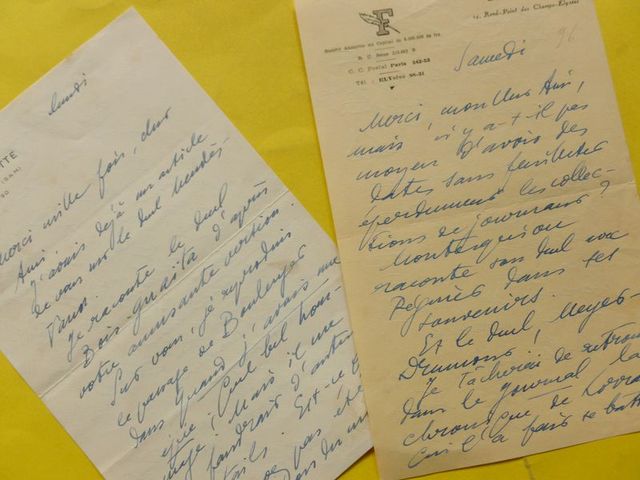 Lundi
TTE
Merci mille fois, cher
Ami,
J'avais déjà un article
de vous sur le duel Mendès-
Vanor.
Je raconte le duel
Bois-
d'après
votre amusante version.
Sur vous, je reproduis
le passage de Boulenger
dans
quand j'avais
que
bel hom-
mage ! Mais il me
faudrait d'autres
tails. Est-ce
pas été
F
Société Anonyme au Capital de
de frs
R. C. Seine
C. C. Postal Paris 242-53
Tél. : ELYsées 98-31
14, Rond-Point des Champs-Elysées
Samedi
96
Merci, mon cher Ami,
mais n'y a-t-il pas
moyen d'avoir des
dates sans feuilleter
éperdument les collec-
tions de journaux ?
Montesquiou
raconte son duel avec
Régnier dans ses
souvenirs.
Et le duel Meyer-
Drumont !
Je tâcherai de retrouver
dans le journal la
chronique de Lorrain
qui l'a fait se battre